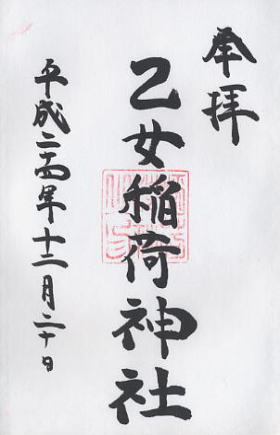 奉拝
乙女稲荷神社
平成二十四年十二月二十日